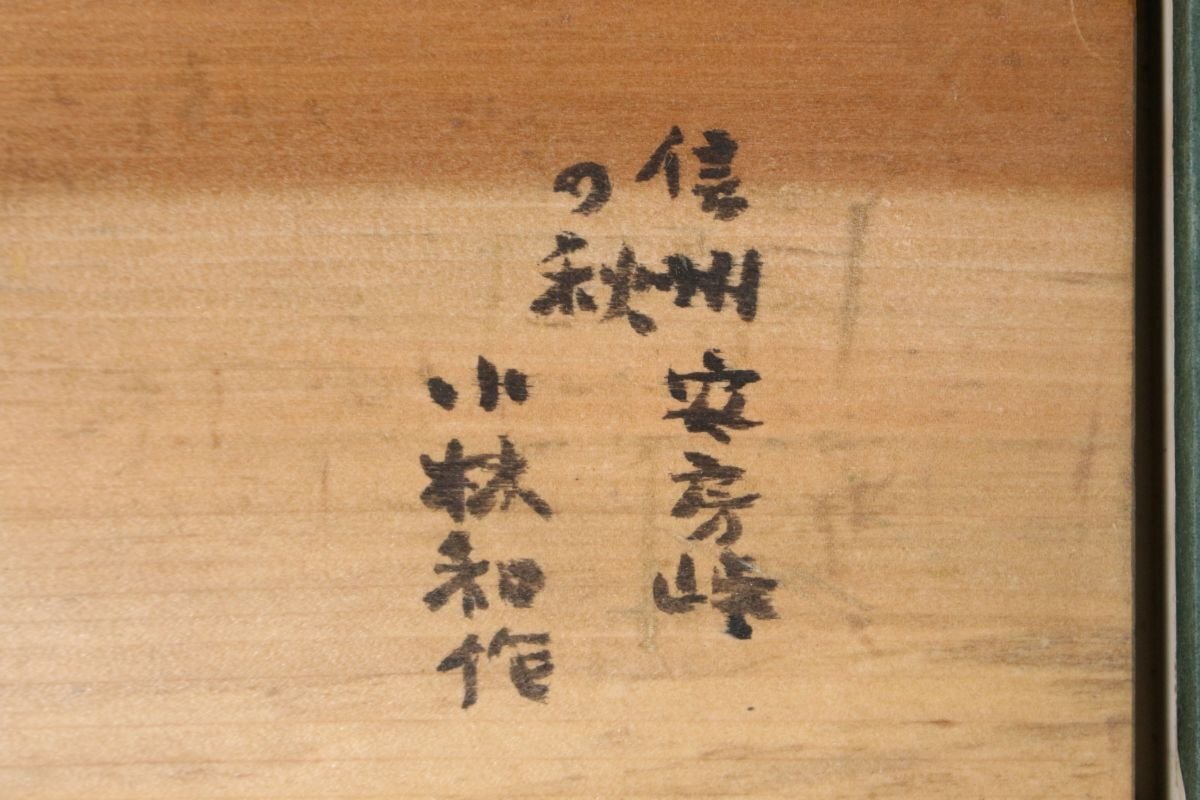 信州安房峠
の秋
小林和作